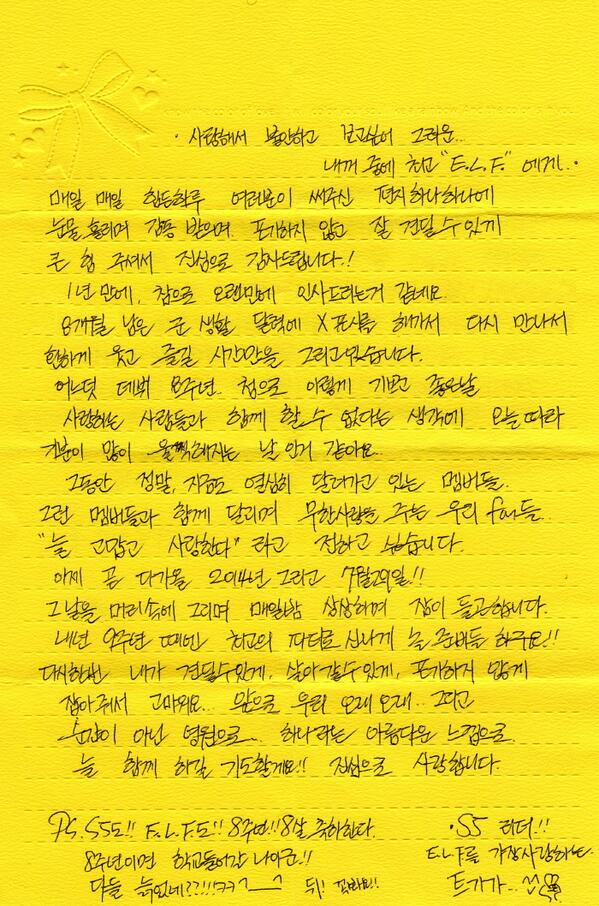 · 사랑해서 불안하고 보고싶어 그리운...
내꺼 중에 최고 "E.L.F." 에게..·
매일 매일 힘든하루 여러분이 써주신 편지하나하나에
눈물 흘리며 감동 받으며 포기하지 않고 잘 견딜수 있게
큰 힘 주셔서 진심으로 감사드립니다.!
1년만에, 참으로 오랜만에 인사드리는거 같네요.
8개월 남은 군 생활 달력에 X표시를 해가며 다시 만나서
환하게 웃고 즐길 시간만을 그리고있습니다.
어느덧 데뷔 8주년.. 첨으로 이렇게 기쁘고 좋은날
사랑하는 사람들과 함께 할 수 없다는 생각에 오늘따라
기분이 많이 울쩍해지는 날 인거 같아요..
그동안 정말, 지금도 열심히 달려가고 있는 멤버들.
그런 멤버들과 함께 달리며 무한사랑을 주는 우리 fan들..
"늘 고맙고 사랑한다" 라고 전하고 싶습니다.
이제 곧 다가올 2014년 그리고 7월29일.!!
그날을 머리속에 그리며 매일밤 상상하며 잠이 들곤합니다.
내년 9주년 때엔 최고의 파티로 신나게 놀 준비들 하구요.!!
다시한번 내가 견딜수있게, 살아갈수있게, 포기하지 않게
잡아줘서 고마워요.. 앞으로 우리 오래오래.. 그리고
순간이 아닌 영원으로.. 하나라는 아름다운 느낌으로
늘 함께 하길 기도할게요!! 진심으로 사랑합니다.
PS. SS도!! E.L.F도!! 8주년!!8살 축하한다.
8주년이면 학교들어갈 나이군.!!
다들 늙었네??!!!ㅋㅋ^__^ 뒤! 꼭봐요!!
·SS 리더.!!
E.L.F를 가장사랑하는
트기가..^^